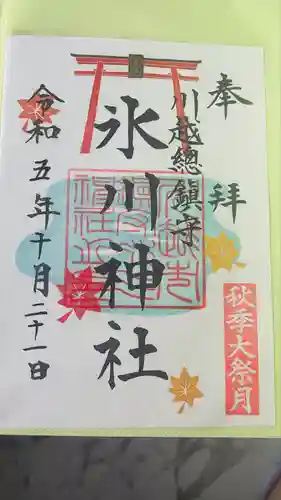 奉拝
川越總鎮守
氷川神社
令和五年十月二十一日
秋季大祭月